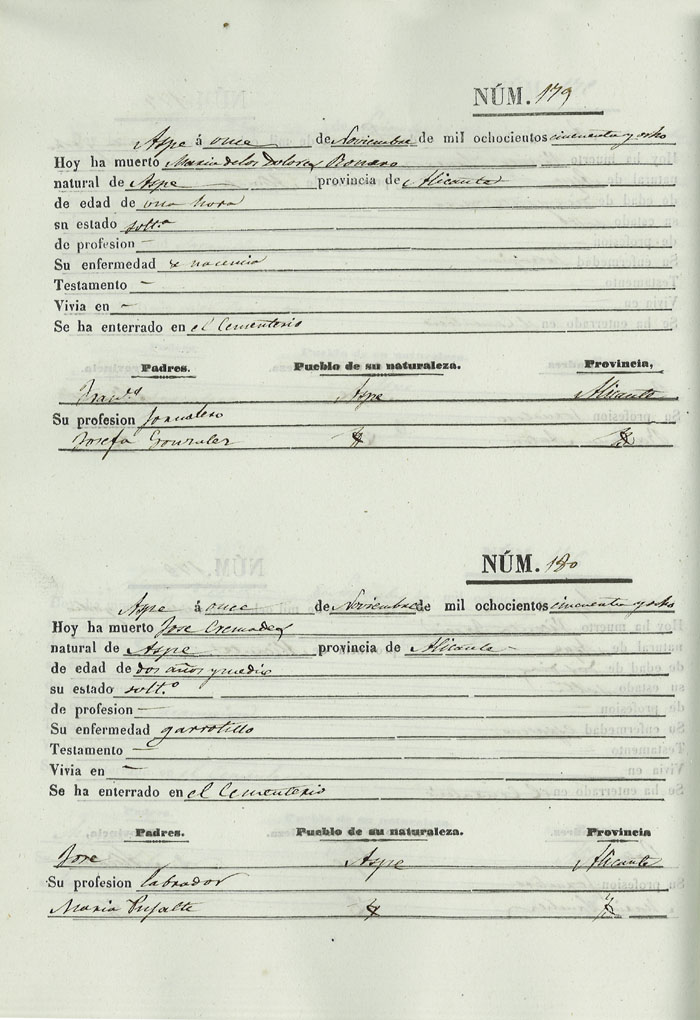 NÚM. 179
Aspe á once de Noviembre de mil ochocientos cincuenta y ocho
Hoy ha muerto Maria de los Dolores Romero
natural de Aspe provincia de Alicante
de edad de una hora
sn estado solt.ª
de profesion —
Su enfermedad de nacencia
Testamento —
Vivia en —
Se ha enterrado en el Cementerio
Padres. Pueblo de su naturaleza. Provincia,
Fran.co Aspe Alicante
Su profesion Jornalero
Josefa Gonzalez
NÚM. 180
Aspe á once de Noviembre de mil ochocientos cincuenta y ocho
Hoy ha muerto Jose Cremades
natural de Aspe provincia de Alicante
de edad de dos años y medio
su estado solt.º
de profesion —
Su enfermedad garrotillo
Testamento —
Vivia en —
Se ha enterrado en el Cementerio
Padres. Pueblo de su naturaleza. Provincia
Jose Aspe Alicante
Su profesion labrador
Maria Pujalte